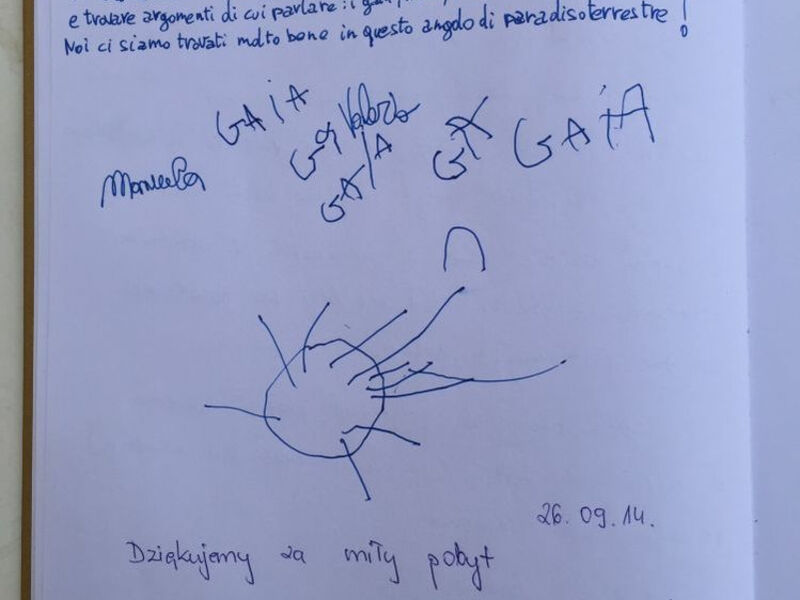 e trovare argomenti di cui parlare: i
Noi ci siamo trovati molto bene in questo angolo di paradiso terrestre!
GAIA
Valerio
GAIA
GAIA
Manuela
26. 09. 14.
Dziękujemy za miły pobyt